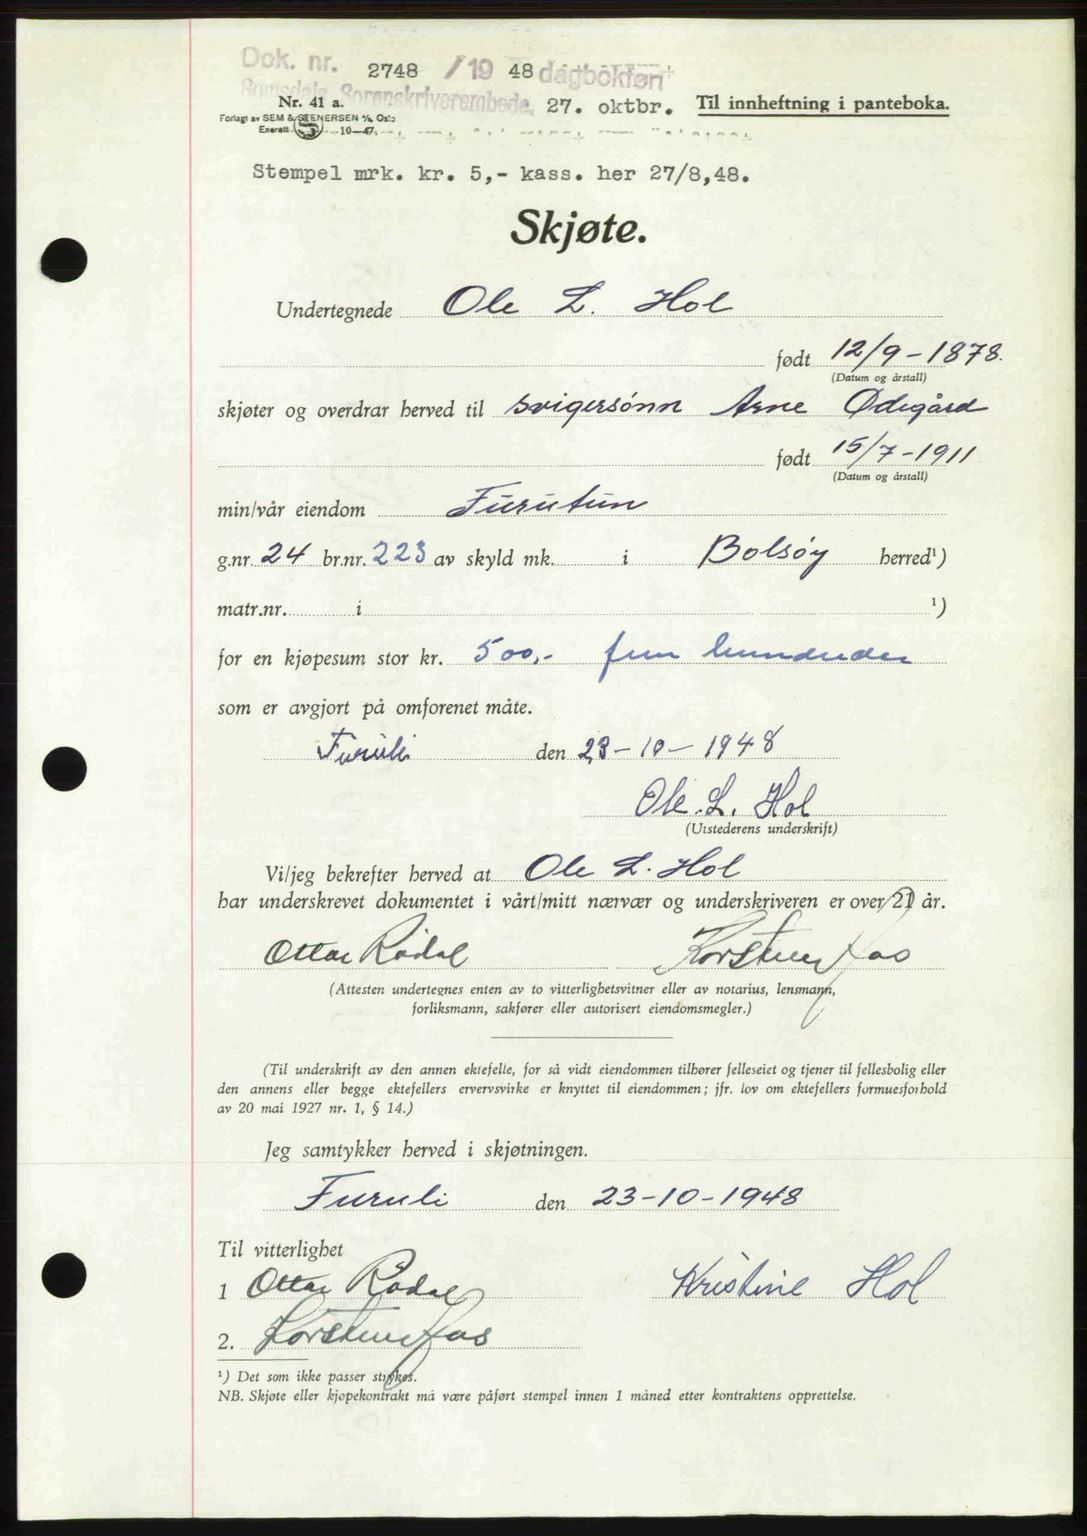 Dok. nr. 2748 /19 48 dagbokført
Romsdals Sorenskriverembede, 27. oktbr. Til innheftning i panteboka.
Nr. 41 a.
Forlagt av SEM & STENERSEN A/S, Oslo
Enerett 10—47.
Stempel mrk. kr. 5,- kass. her 27/8,48.
Skjøte.
Undertegnede Ole L. Hol
født 12/9-1878.
(Datum og årstall)
skjøter og overdrar herved til svigersónn Arne Ødegård
født 15/7-1911
(Datum og årstall)
min/vår eiendom Furutun
g.nr. 24 br.nr. 223 av skyld mk. i Bolsøy herred¹)
matr.nr. i ¹)
for en kjøpesum stor kr. 500,- fem hundreder
som er avgjort på omforenet måte.
Furuli den 23-10-1948
Ole. L. Hol
(Utstederens underskrift)
Vi/jeg bekrefter herved at Ole L. Hol
har underskrevet dokumentet i vårt/mitt nærvær og underskriveren er over 21 år.
Ottar Rødal
(Attesten undertegnes enten av to vitterlighetsvitner eller av notarius, lensmann,
forliksmann, sakfører eller autorisert eiendomsmegler.)
(Til underskrift av den annen ektefelle, for så vidt eiendommen tilhører felleseiet og tjener til fellesbolig eller
den annens eller begge ektefellers ervervsvirke er knyttet til eiendommen; jfr. lov om ektefellers formuesforhold
av 20 mai 1927 nr. 1, § 14.)
Jeg samtykker herved i skjøtningen.
Furuli den 23-10-1948
Til vitterlighet
1 Ottar Rødal Kristine Hol
2.
¹) Det som ikke passer strykes.
NB. Skjøte eller kjøpekontrakt må være påført stempel innen 1 måned etter kontraktens opprettelse.